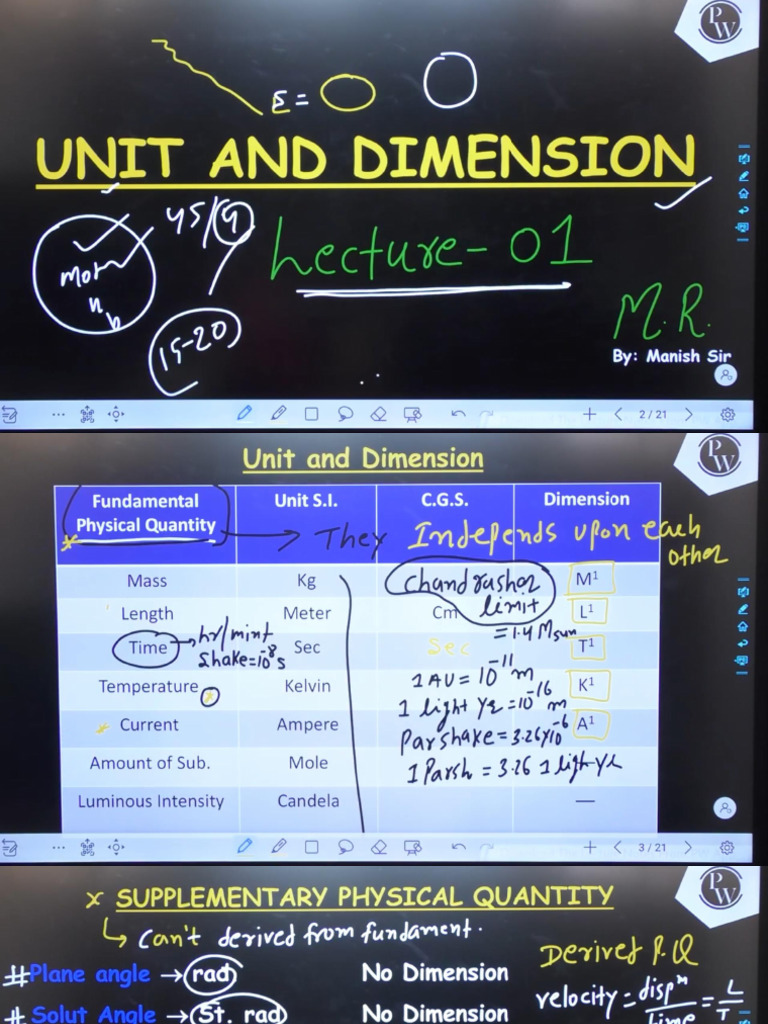 PW
E =
UNIT AND DIMENSION
45/9
Lecture-01
15-20
M.R.
By: Manish Sir
2/21
PW
Unit and Dimension
Fundamental Physical Quantity Unit S.I. C.G.S. Dimension
→ They Independs upon each other
Mass Kg Chandrasher limit M¹
Length Meter Cm L¹
= 1.4 Msun
Time → hr/mint Sec Sec T¹
Shake=10⁻⁸s
1 AU = 10⁻¹¹ m
Temperature Kelvin K¹
1 light Yr = 10⁻¹⁶ m
Current Ampere A¹
Parshake = 3.26×10⁻⁶
Amount of Sub. Mole
1 Parsh = 3.26 1 ligh-Yr
Luminous Intensity Candela —
3/21
PW
x SUPPLEMENTARY PHYSICAL QUANTITY
↳ Can't derived from fundament.
Derived P.Q
#Plane angle → rad No Dimension
velocity = dispⁿ/Time = L/T
# Solut Angle → St. rad No Dimension